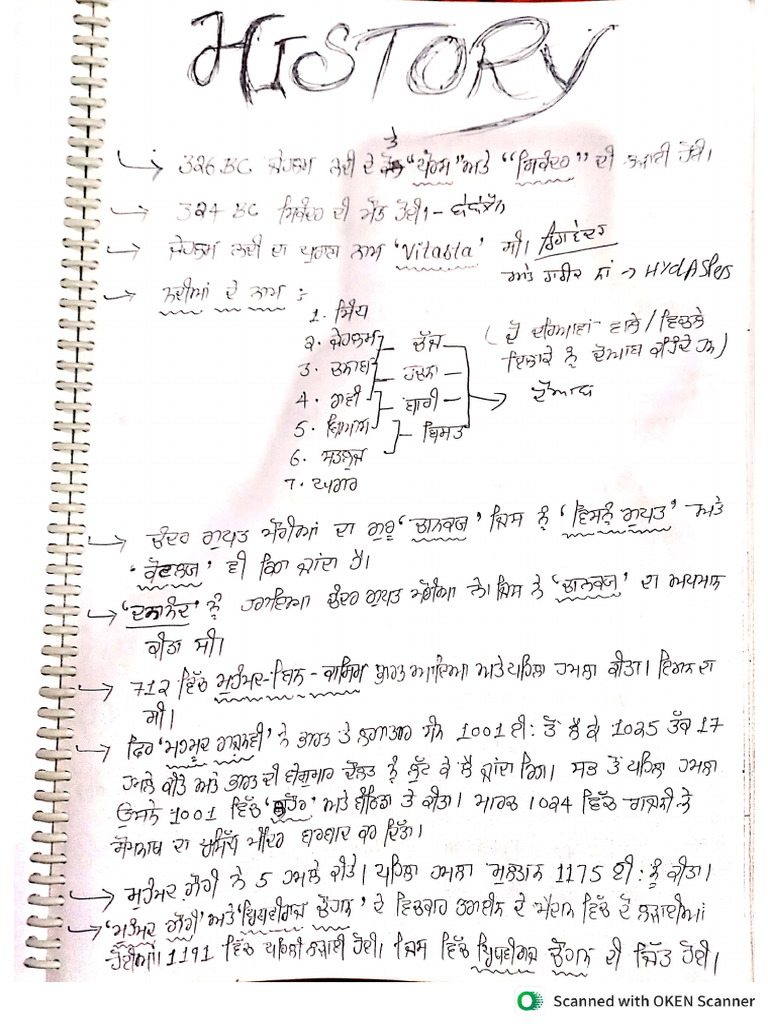 HISTORY
326 BC ਜੇਹਲਮ ਨਦੀ ਦੇ ਤੇ "ਪੋਰਸ" ਅਤੇ "ਸਿਕੰਦਰ" ਦੀ ਲੜਾਈ ਹੋਈ।
324 BC ਸਿਕੰਦਰ ਦੀ ਮੌਤ ਹੋਈ। -
ਜੇਹਲਮ ਨਦੀ ਦਾ ਪੁਰਾਣਾ ਨਾਮ 'Vitasta' ਸੀ। ਰਿਗਵੇਦਕ
ਅਤੇ ਗਰੀਕ ਨਾਂ → HYdASPes
ਨਦੀਆਂ ਦੇ ਨਾਮ :-
1. ਸਿੰਧ
2. ਜੇਹਲਮ
3. ਚਨਾਬ
4. ਰਾਵੀ
5. ਬਿਆਸ
6. ਸਤਲੁਜ
7. ਘਗਰ
ਚੱਜ
ਰਚਨਾ
ਬਾਰੀ
ਬਿਸਤ
(ਦੋ ਦਰਿਆਵਾਂ ਵਾਲੇ/ਵਿਚਲੇ
ਇਲਾਕੇ ਨੂੰ ਦੋਆਬ ਕਹਿੰਦੇ ਹਨ)
ਦੋਆਬ
ਚੰਦਰ ਗੁਪਤ ਮੌਰੀਆ ਦਾ ਗੁਰੂ 'ਚਾਨਕਯ' ਜਿਸ ਨੂੰ 'ਵਿਸਨੂੰ ਗੁਪਤ' ਅਤੇ
'ਕੌਟਲਯ' ਵੀ ਕਿਹਾ ਜਾਂਦਾ ਹੈ।
'ਧਨਾਨੰਦ' ਨੂੰ ਹਰਾਇਆ ਚੰਦਰ ਗੁਪਤ ਮੌਰੀਆ ਨੇ। ਜਿਸ ਨੇ 'ਚਾਨਕਯ' ਦਾ ਅਪਮਾਨ
ਕੀਤਾ ਸੀ।
712 ਵਿੱਚ ਮੁਹੰਮਦ-ਬਿਨ-ਕਾਸਿਮ ਭਾਰਤ ਆਇਆ ਅਤੇ ਪਹਿਲਾ ਹਮਲਾ ਕੀਤਾ। ਇਰਾਨ ਦਾ
ਸੀ।
ਫਿਰ 'ਮਹਮੂਦ ਗਜ਼ਨਵੀ' ਨੇ ਭਾਰਤ ਤੇ ਲਗਾਤਾਰ ਸੰਨ 1001 ਈ: ਤੋਂ ਲੈ ਕੇ 1025 ਤੱਕ 17
ਹਮਲੇ ਕੀਤੇ ਅਤੇ ਭਾਰਤ ਦੀ ਬੇਸ਼ੁਮਾਰ ਦੌਲਤ ਨੂੰ ਲੁੱਟ ਕੇ ਲੈ ਜਾਂਦਾ ਰਿਹਾ। ਸਭ ਤੋਂ ਪਹਿਲਾ ਹਮਲਾ
ਉਸਨੇ 1001 ਵਿੱਚ ਅਤੇ ਤੇ ਕੀਤਾ। ਮਾਰਚ 1024 ਵਿੱਚ ਗਜਨੀ ਨੇ
ਸੋਮਨਾਥ ਦਾ ਪ੍ਰਸਿੱਧ ਮੰਦਿਰ ਬਰਬਾਦ ਕਰ ਦਿੱਤਾ।
ਮੁਹੰਮਦ ਗੌਰੀ ਨੇ 5 ਹਮਲੇ ਕੀਤੇ। ਪਹਿਲਾ ਹਮਲਾ ਮੁਲਤਾਨ 1175 ਈ: ਨੂੰ ਕੀਤਾ।
'ਮੁਹੰਮਦ ਗੌਰੀ' ਅਤੇ 'ਪ੍ਰਿਥਵੀਰਾਜ ਚੌਹਾਨ' ਦੇ ਵਿਚਕਾਰ ਤਰਾਈਨ ਦੇ ਮੈਦਾਨ ਵਿੱਚ ਦੋ ਲੜਾਈਆਂ
ਹੋਈਆਂ। 1191 ਵਿੱਚ ਪਹਿਲੀ ਲੜਾਈ ਹੋਈ। ਜਿਸ ਵਿੱਚ ਪ੍ਰਿਥਵੀਰਾਜ ਚੌਹਾਨ ਦੀ ਜਿੱਤ ਹੋਈ।
Scanned with OKEN Scanner